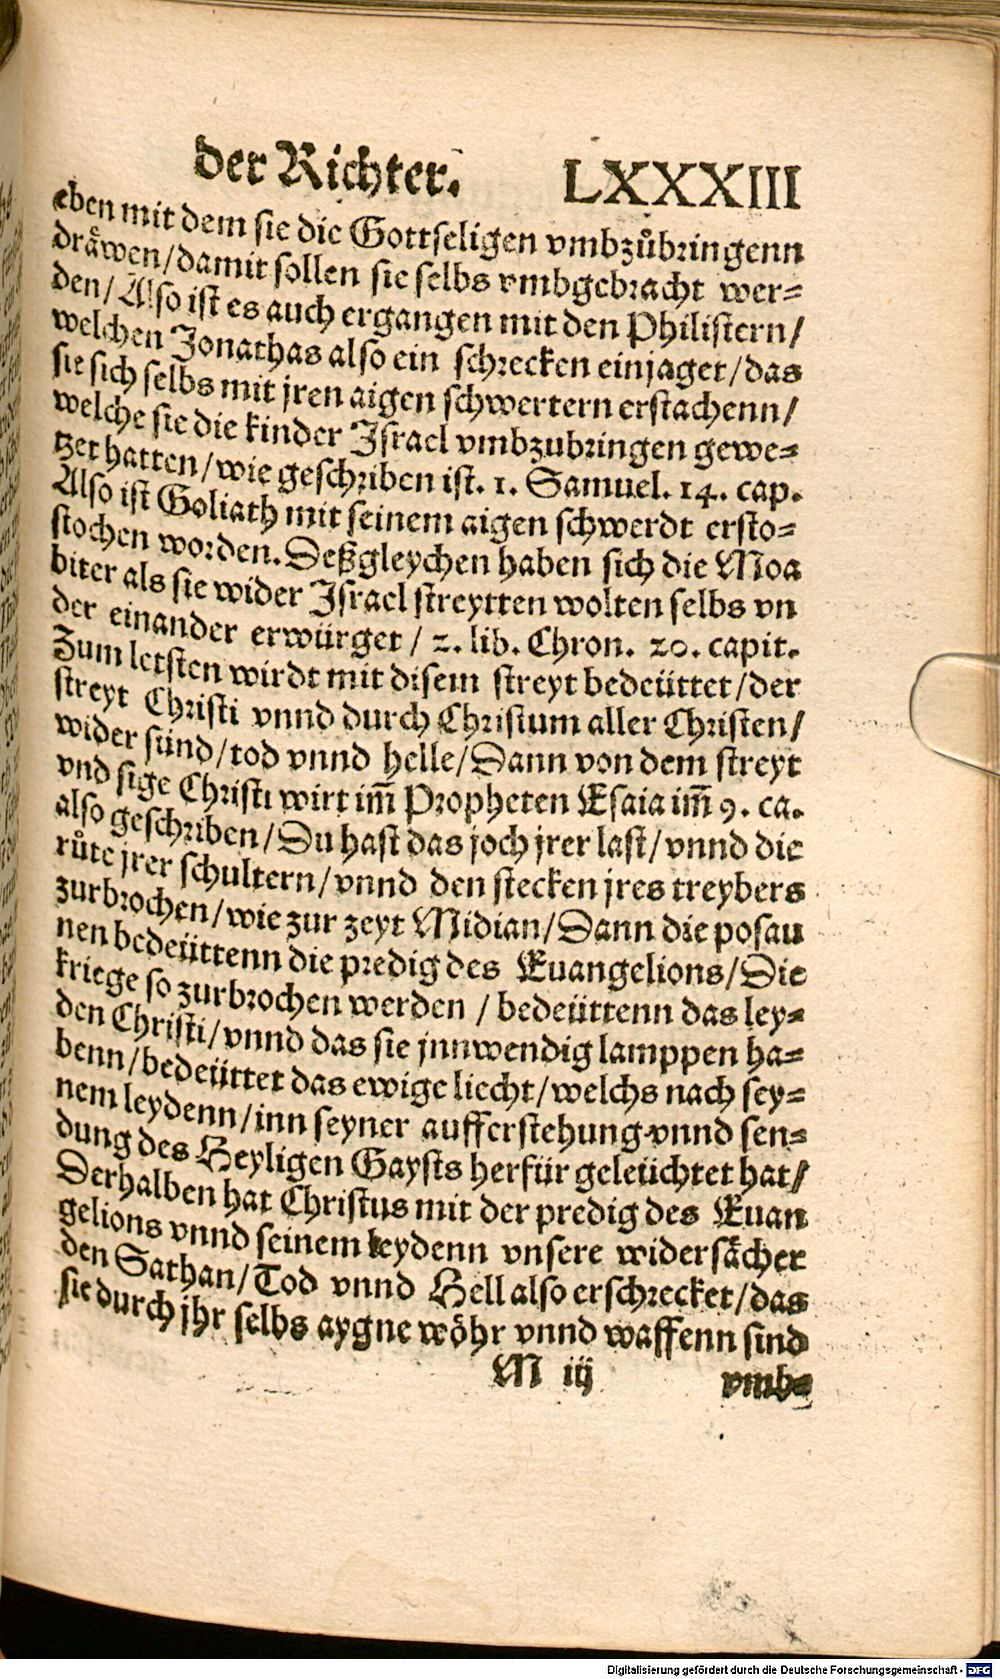 der Richter. LXXXIII
eben mit dem sie die Gottseligen vmbzůbringenn
dråwen/damit sollen sie selbs vmbgebracht wer=
den/Also ist es auch ergangen mit den Philistern/
welchen Jonathas also ein schrecken einjaget/das
sie sich selbs mit jren aigen schwertern erstachenn/
welche sie die kinder Israel vmbzubringen gewe=
tzet hatten/wie geschriben ist. 1. Samuel. 14. cap.
Also ist Goliath mit seinem aigen schwerdt ersto=
stochen worden. Deßgleychen haben sich die Moa
biter als sie wider Israel streytten wolten selbs vn
der einander erwürget / 2. lib. Chron. 20. capit.
Zum letsten wirdt mit disem streyt bedeüttet/der
streyt Christi vnnd durch Christum aller Christen/
wider sünd/tod vnnd helle/Dann von dem streyt
vnd sige Christi wirt im̄ Propheten Esaia im̄ 9. ca.
also geschriben/Du hast das joch jrer last/vnnd die
růte jrer schultern/vnnd den stecken jres treybers
zurbrochen/wie zur zeyt Midian/Dann die posau
nen bedeüttenn die predig des Euangelions/Die
kriege so zurbrochen werden / bedeüttenn das ley=
den Christi/vnnd das sie jnnwendig lamppen ha=
benn/bedeüttet das ewige liecht/welchs nach sey=
nem leydenn/inn seyner aufferstehung vnnd sen=
dung des Heyligen Gaysts herfür geleüchtet hat/
Derhalben hat Christus mit der predig des Euan
gelions vnnd seinem leydenn vnsere widersächer
den Sathan/Tod vnnd Hell also erschrecket/das
sie durch jhr selbs aygne wöhr vnnd waffenn sind
M iij vmb=
Digitalisierung gefördert durch die Deutsche Forschungsgemeinschaft - DFG